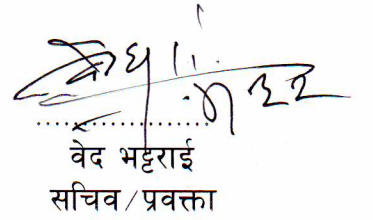 वेद भट्टराई
सचिव/प्रवक्ता